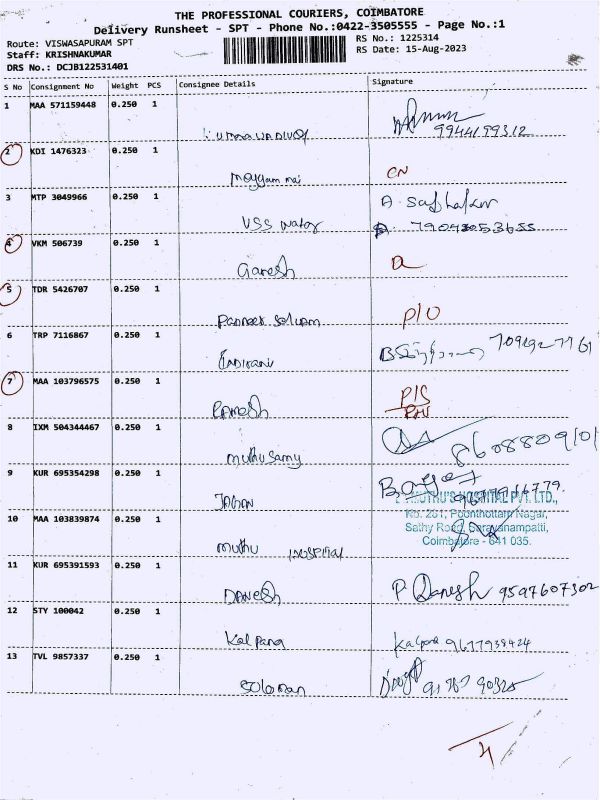 THE PROFESSIONAL COURIERS, COIMBATORE
Delivery Runsheet - SPT - Phone No.:0422-3505555 - Page No.:1
Route: VISWASAPURAM SPT
RS No.: 1225314
Staff: KRISHNAKUMAR
RS Date: 15-Aug-2023
DRS No.: DCJB122531401
S No Consignment No Weight PCS Consignee Details Signature
1 MAA 571159448 0.250 1
9944199312
2 KDI 1476323 0.250 1
CN
3 MTP 3049966 0.250 1
VSS
4 VKM 506739 0.250 1
Ganesh
5 TDR 5426707 0.250 1 P/O
Panneer Selvam
6 TRP 7116867 0.250 1
7 MAA 103796575 0.250 1 P/S
RAMESH
8 IXM 504344467 0.250 1
muthu Samy 8608809101
9 KUR 695354298 0.250 1
MUTHU'S HOSPITAL PVT. LTD.,
10 MAA 103839874 0.250 1 No. 261, Poonthottam Nagar,
Sathy Road, Saravanampatti,
Coimbatore - 641 035.
muthu HOSPITAL
11 KUR 695391593 0.250 1
DANESH P Danesh 9597607302
12 STY 100042 0.250 1
Kalpana Kalpana 9677938424
13 TVL 9857337 0.250 1
Soloman